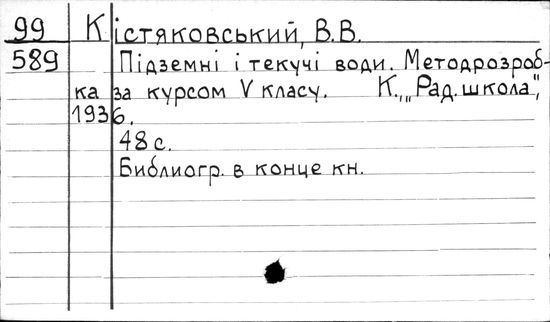 99 Кістяковський, В.В.
589 Підземні і текучі води. Методрозроб-
ка за курсом V класу. К., „Рад. школа",
1936.
48 с.
Библиогр. в конце кн.